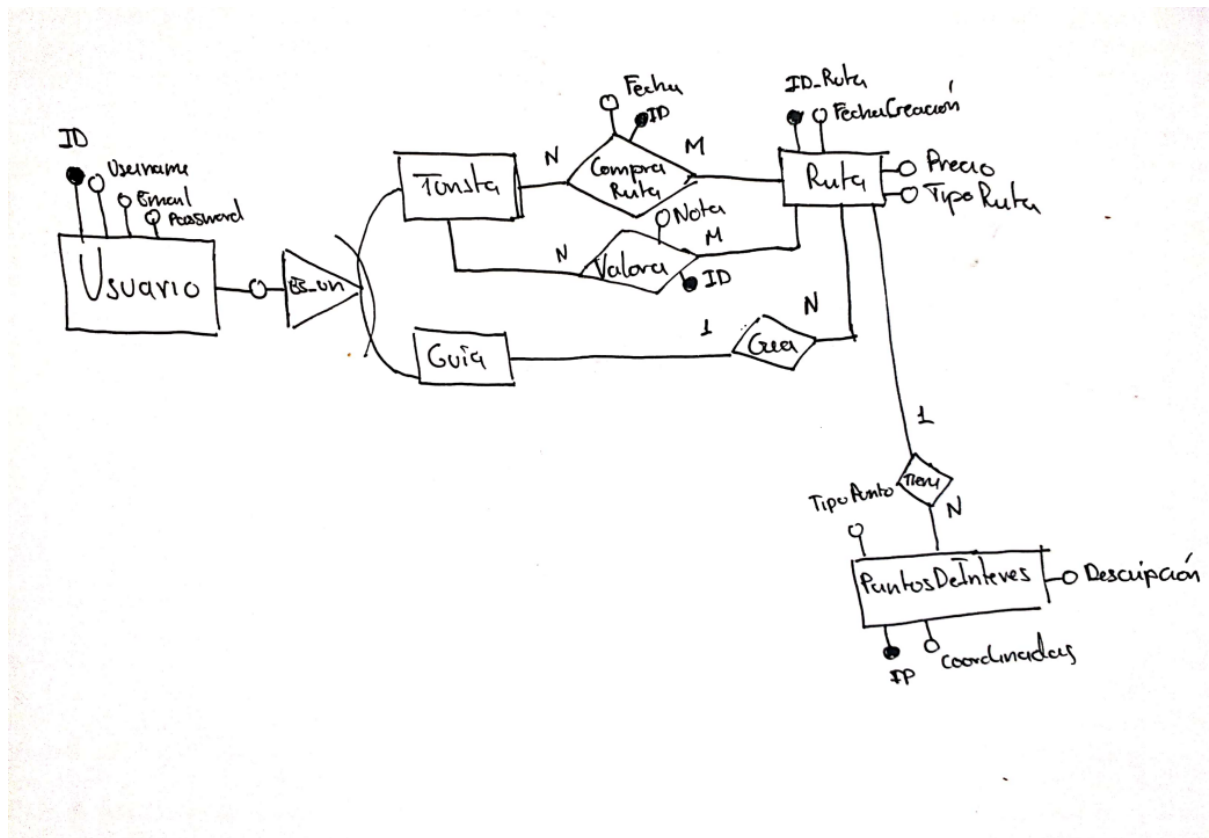 ID
Username
Email
Password
Usuario
ES_un
Turista
N
Fecha
ID
Compra
Ruta
M
ID_Ruta
FechaCreación
Ruta
Precio
TipoRuta
N
Nota
Valora
M
ID
Guía
1
Crea
N
1
Tiene
N
TipoPunto
PuntosDeInteres
Descripción
ID
Coordenadas